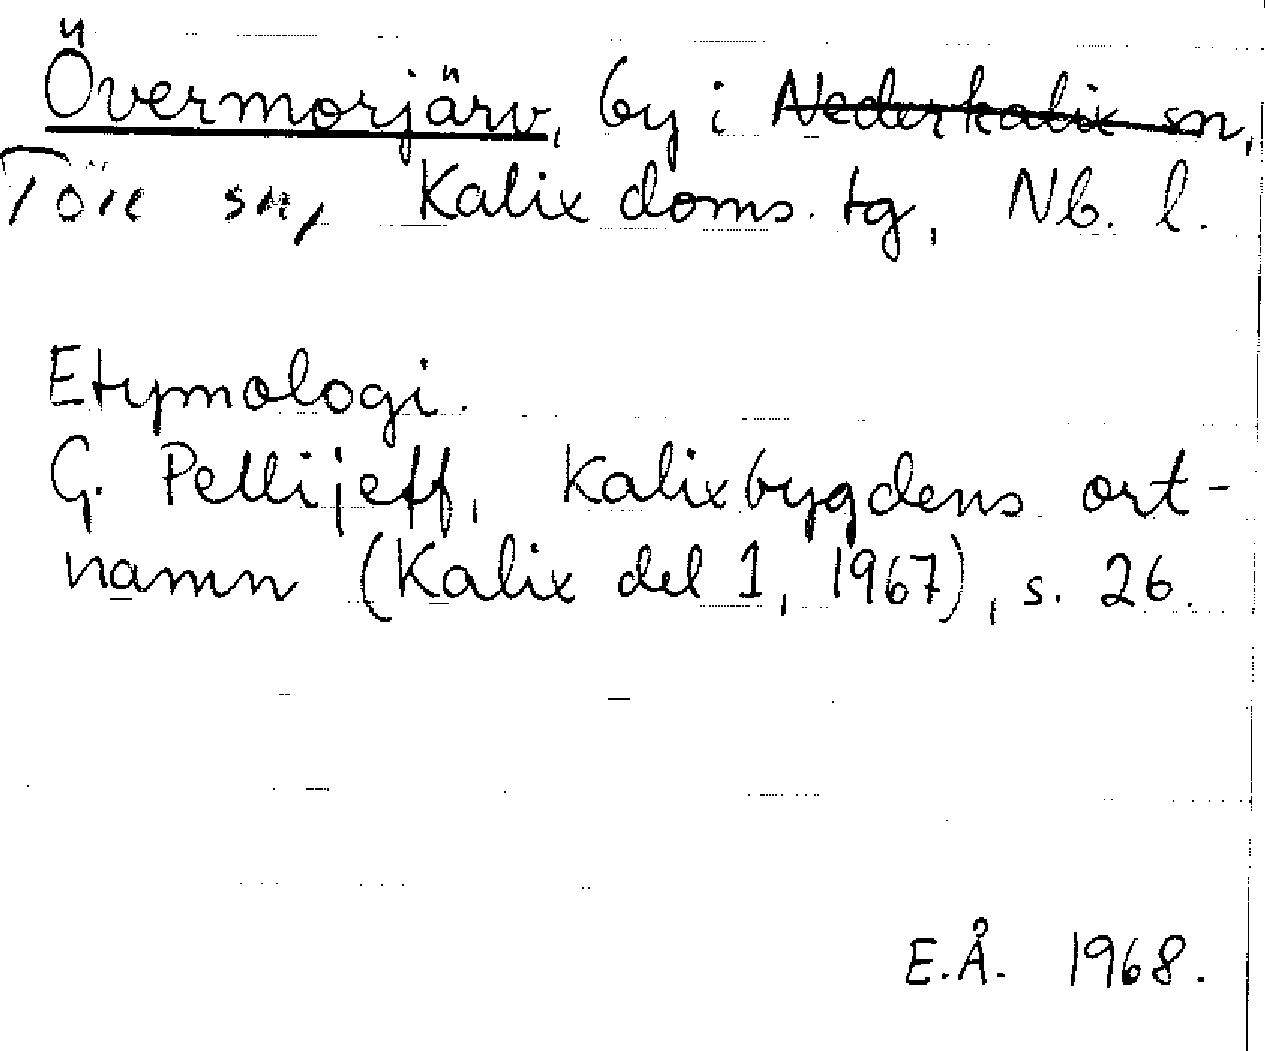 Övermorjärv, by i Nederkalix sn,
Töre sn, Kalix doms. tg, Nb. l.
Etymologi.
G. Pellijeff, Kalixbygdens ort-
namn (Kalix del 1, 1967), s. 26.
E.Å. 1968.